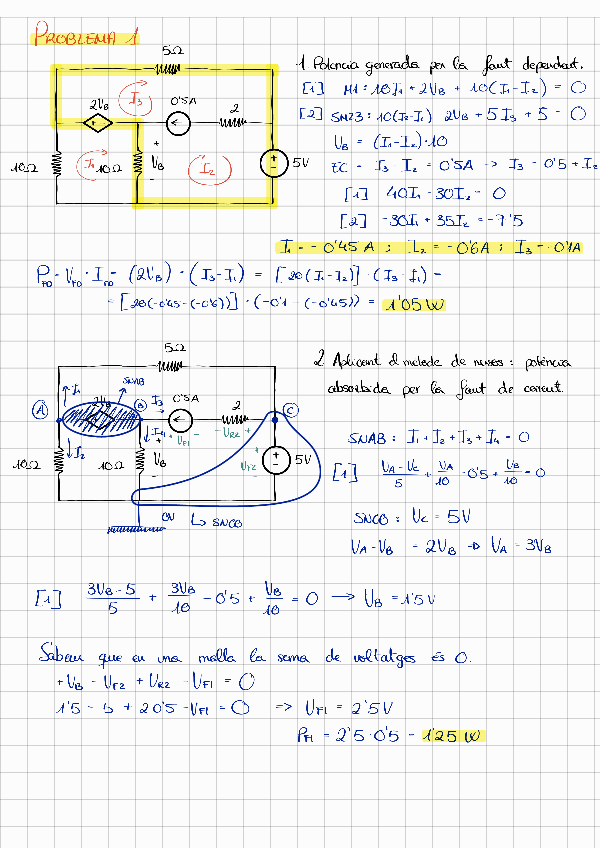 PROBLEMA 1
5Ω
2VB
I3
0'5A
2
10Ω
I1
10Ω
+
VB
-
I2
+
-
5V
1. Potencia generada per la font dependent.
[1] M1: 10I1 + 2VB + 10(I1-I2) = 0
[2] SM23: 10(I2-I1) - 2VB + 5I3 + 5 = 0
VB = (I1-I2)·10
FC - I3 - I2 = 0'5A -> I3 = 0'5 + I2
[1] 40I1 - 30I2 = 0
[2] -30I1 + 35I2 = -7'5
I1 = -0'45 A ; I2 = -0'6A ; I3 = -0'1A
PFD = VFD · IFD = (2VB) · (I3-I1) = [20(I1-I2)] · (I3-I1) =
= [20(-0'45-(-0'6))] · (-0'1 - (-0'45)) = 1'05 W
5Ω
I1
SNAB
A
B
I3
0'5A
2
C
I2
I4
+ VF1 -
- VR2 +
10Ω
10Ω
+
VB
-
+
VF2
-
5V
0V
SNC0
2. Aplicant el metode de nusos: potència
absorbida per la font de corrent.
SNAB: I1+I2+I3+I4 = 0
[1] VA-VC/5 + VA/10 - 0'5 + VB/10 = 0
SNC0: VC = 5V
VA-VB = 2VB -> VA = 3VB
[1] 3VB-5/5 + 3VB/10 - 0'5 + VB/10 = 0 -> VB = 1'5V
Sabem que en una malla la suma de voltatges és 0.
+VB - VF2 + VR2 - VF1 = 0
1'5 - 5 + 2·0'5 - VF1 = 0 => VF1 = 2'5V
PF1 = 2'5·0'5 = 1'25 W